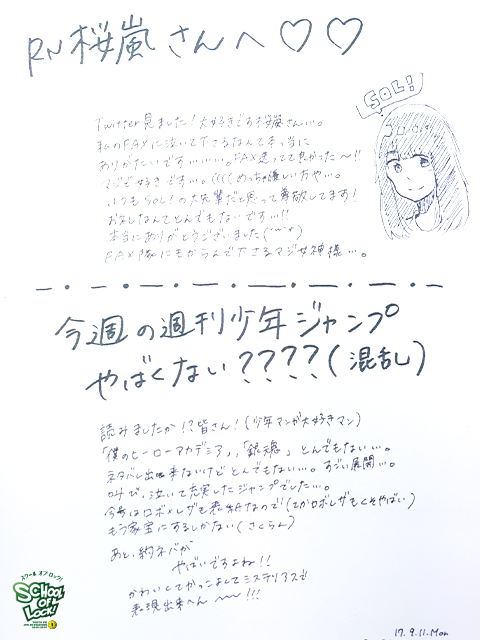 RN 桜嵐さんへ♡♡
SOL!
Twitter見ました!大好きです桜嵐さん…。
私のFAXに泣いて下さるなんて本当に
ありがたいです……。FAX送ってて良かった〜!!
マジで好きです…。((((めっちゃ優しい方や…。
いつもSOL!の大先輩だと思って尊敬してます!
お返しなんてとんでもないです…!!
本当にありがとうございました
FAX隊にもからんで下さるマジ女神様…。
今週の週刊少年ジャンプ
やばくない????(混乱)
読みましたか!?皆さん!(少年マンガ大好きマン)
「僕のヒーローアカデミア」,「銀魂」とんでもない…。
ネタバレ出来ないけどとんでもない…。すごい展開…。
叫び、泣いて充実したジャンプでした…。
今号はロボ×レザも表紙なので(てかロボレザもくそやばい)
もう家宝にするしかない(さくらん)
あと、約ネバが
やばいですよね!!
かわいくてかっこよくてミステリアスで
表現出来へん〜〜!!!
スクール オブ ロック!
SCHOOL OF LOCK!
17.9.11.Mon